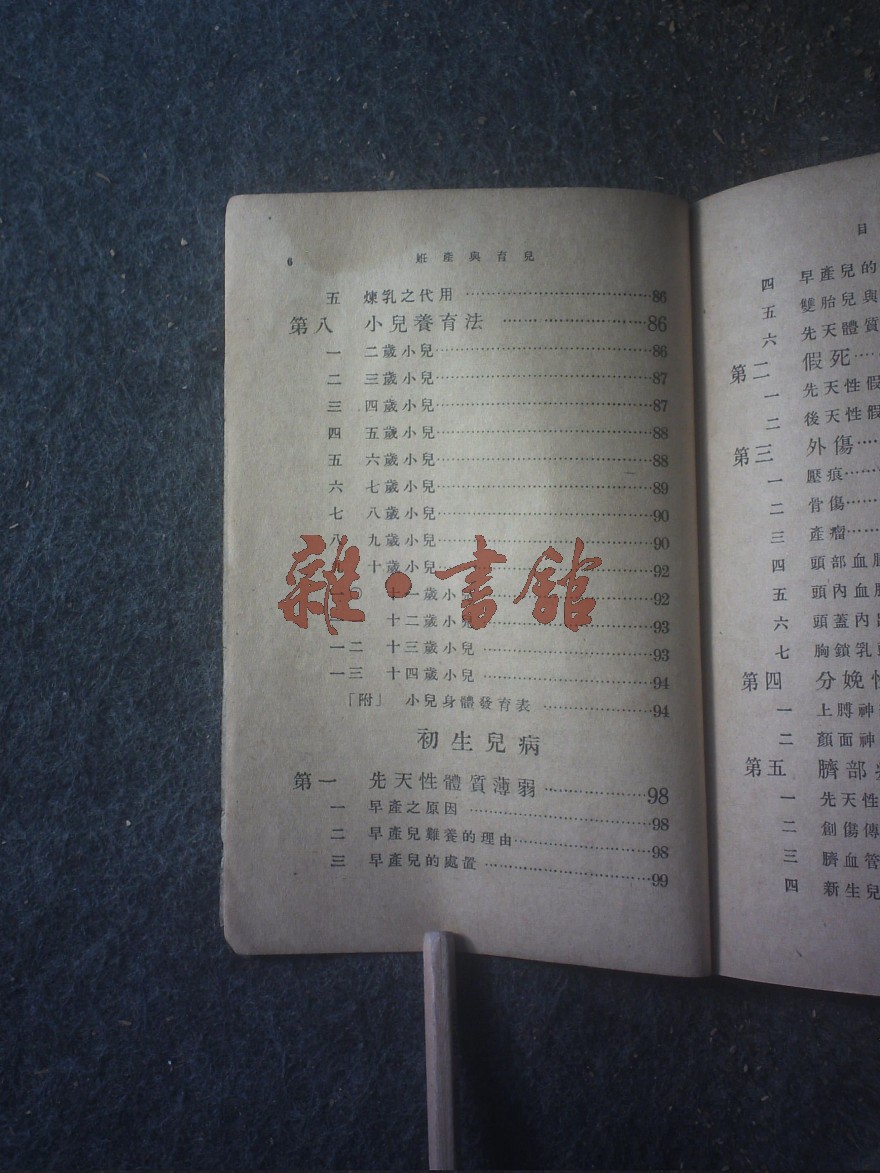 6 姙產與育兒
五 煉乳之代用 86
第八 小兒養育法 86
一 二歲小兒 86
二 三歲小兒 87
三 四歲小兒 87
四 五歲小兒 88
五 六歲小兒 88
六 七歲小兒 89
七 八歲小兒 90
八 九歲小兒 90
十歲小兒 92
一〇 十一歲小兒 92
十二歲小兒 93
一二 十三歲小兒 93
一三 十四歲小兒 94
「附」 小兒身體發育表 94
初生兒病
第一 先天性體質薄弱 98
一 早產之原因 98
二 早產兒難養的理由 98
三 早產兒的處置 99
雜·書館
目
四 早產兒的
五 雙胎兒與
六 先天體質
第二 假死
一 先天性假
二 後天性假
第三 外傷
一 壓痕
二 骨傷
三 產瘤
四 頭部血
五 頭內血
六 頭蓋內
七 胸鎖乳
第四 分娩
一 上膊神
二 顏面神
第五 臍部
一 先天性
二 創傷傳
三 臍血管
四 新生兒